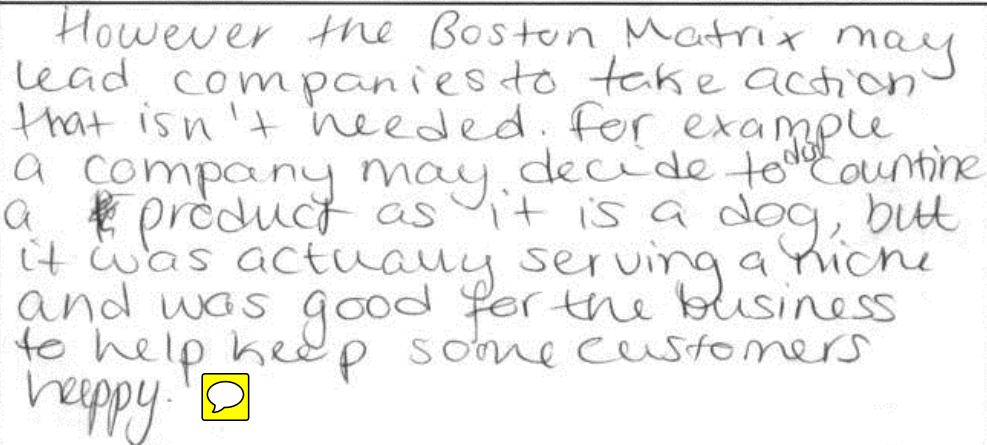 However the Boston Matrix may
lead companies to take action
that isn't needed. For example
a company may decide to dis countine
a product as it is a dog, but
it was actually serving a niche
and was good for the business
to help keep some customers
happy.